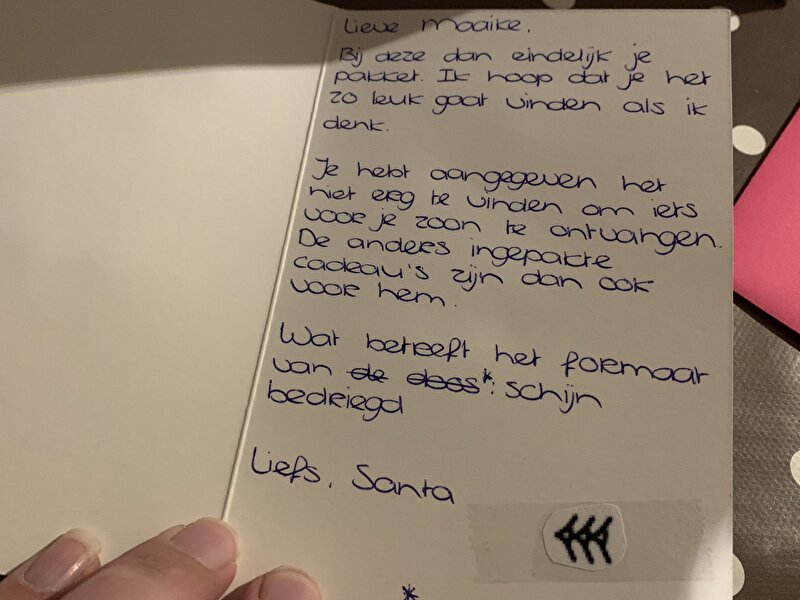 Lieve Maaike,
Bij deze dan eindelijk je
pakket. Ik hoop dat je het
zo leuk gaat vinden als ik
denk.
Je hebt aangegeven het
niet erg te vinden om iets
voor je zoon te ontvangen.
De anders ingepakte
cadeau's zijn dan ook
voor hem.
Wat betreft het formaat
van de doos*: schijn
bedriegd
Liefs, Santa
*